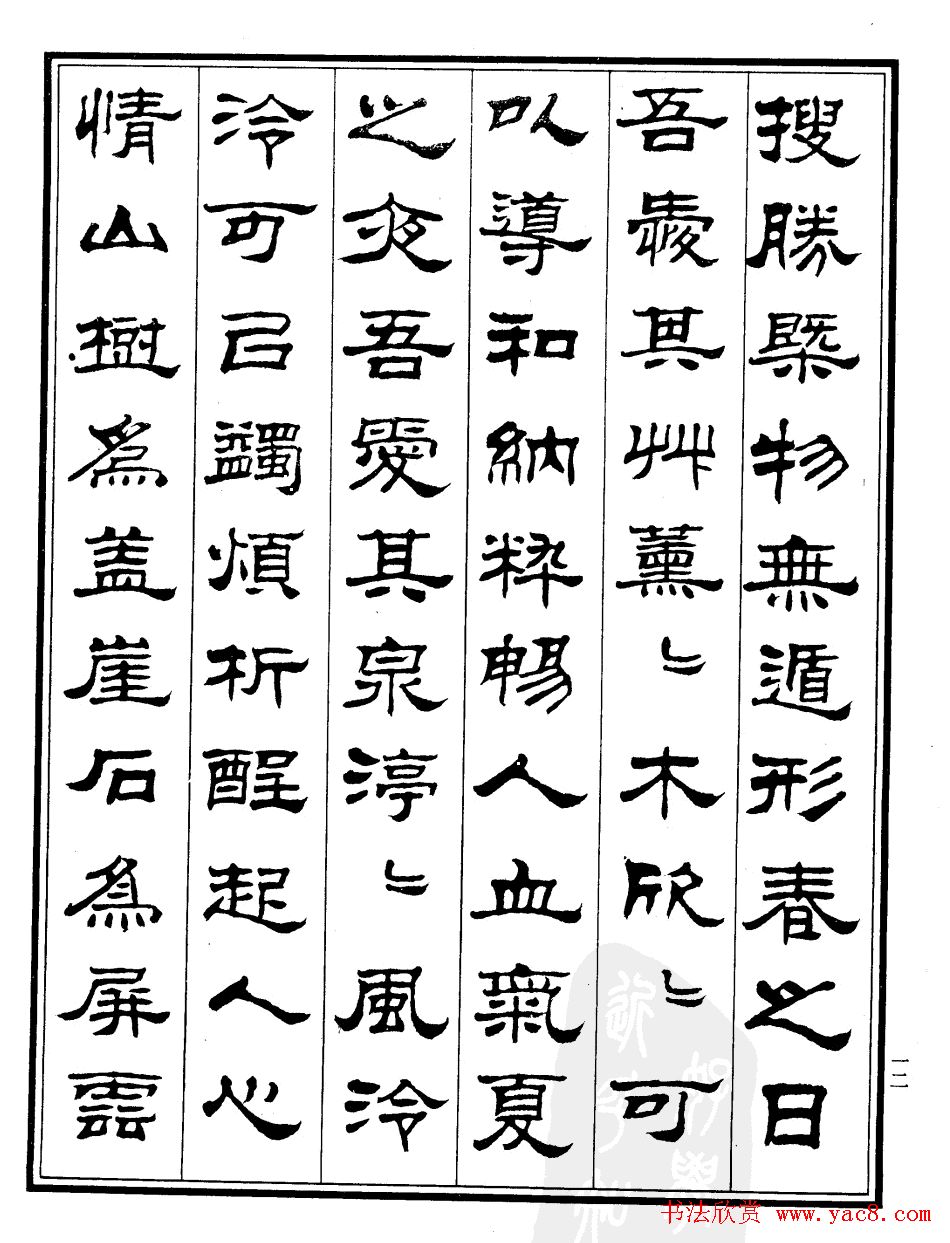 搜勝槩物無遁形春之日
吾愛其艸薰〻木欣〻可
以導和納粹暢人血氣夏
之夜吾愛其泉渟〻風泠
泠可㠯蠲煩析酲起人心
情山樹為盖崖石為屏雲
一二
书法欣赏 www.yac8.com